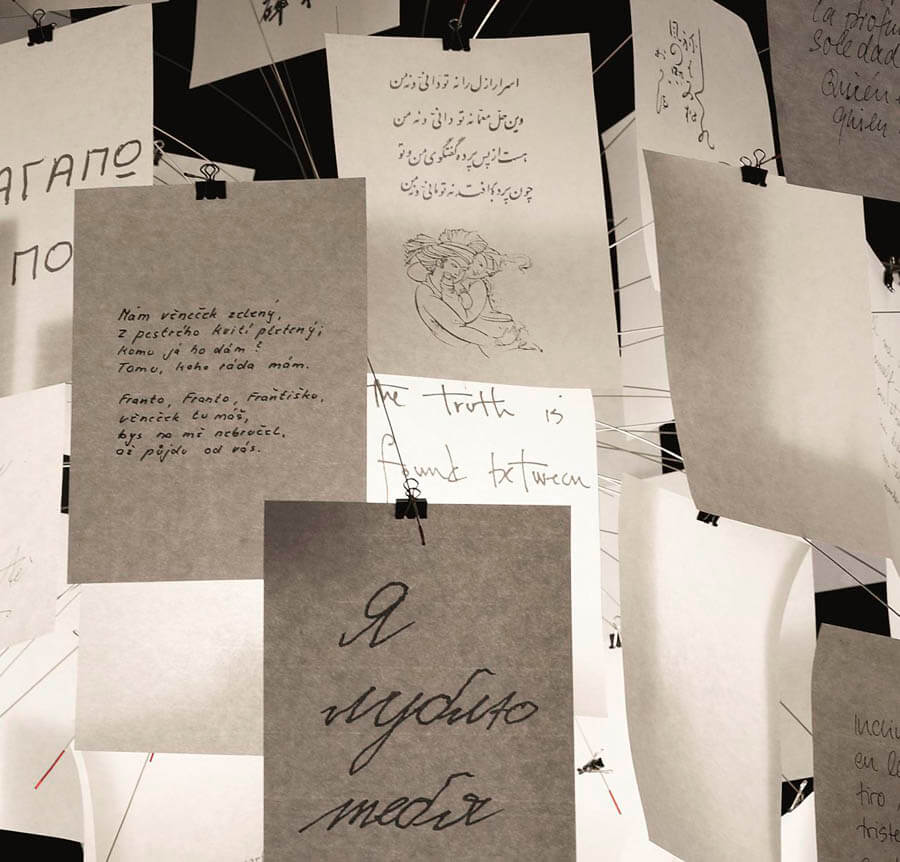 la profun
soledad
Quién
quien
اسرار ازل را نه تو دانی و نه من
وین حل معما نه تو دانی و نه من
هست از پس پرده گفتگوی من و تو
چون پرده بر افتد نه تو مانی و نه من
ΑΓΑΠΟ
ΠΟ
Mám věneček zelený,
z pestrého kvítí pletený;
komu já ho dám?
Tomu, koho ráda mám.
Franto, Franto, Františku,
věneček tu máš,
bys na mě nebručel,
až půjdu od vás.
the truth is
found between
Я
лублю
тебя
Incli
en l
tiro
triste